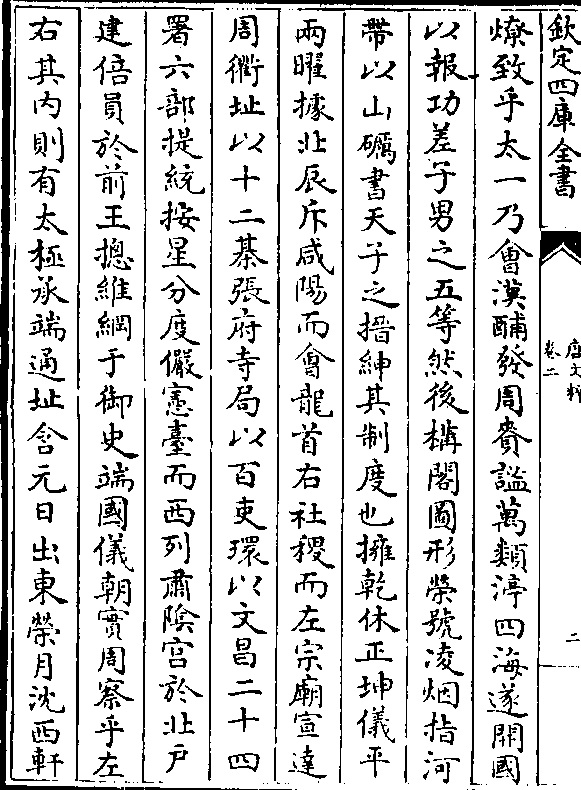 欽定四庫全書
唐文粹
卷二
二
燎致乎太一乃會漢酺發周賚謐萬類渟四海遂開國
以報功差子男之五等然後構閣圖形榮號凌烟指河
帶以山礪書天子之搢紳其制度也擁乾休正坤儀平
兩曜據北辰斥咸陽而會龍首右社稷而左宗廟宣達
周衢址以十二棊張府寺局以百吏環以文昌二十四
署六部提統按星分度儼憲臺而西列肅陰宫於北戸
建倍員於前王摠維綱于御史端國儀朝實周察乎左
右其内則有太極承端通址含元日出東榮月沈西軒